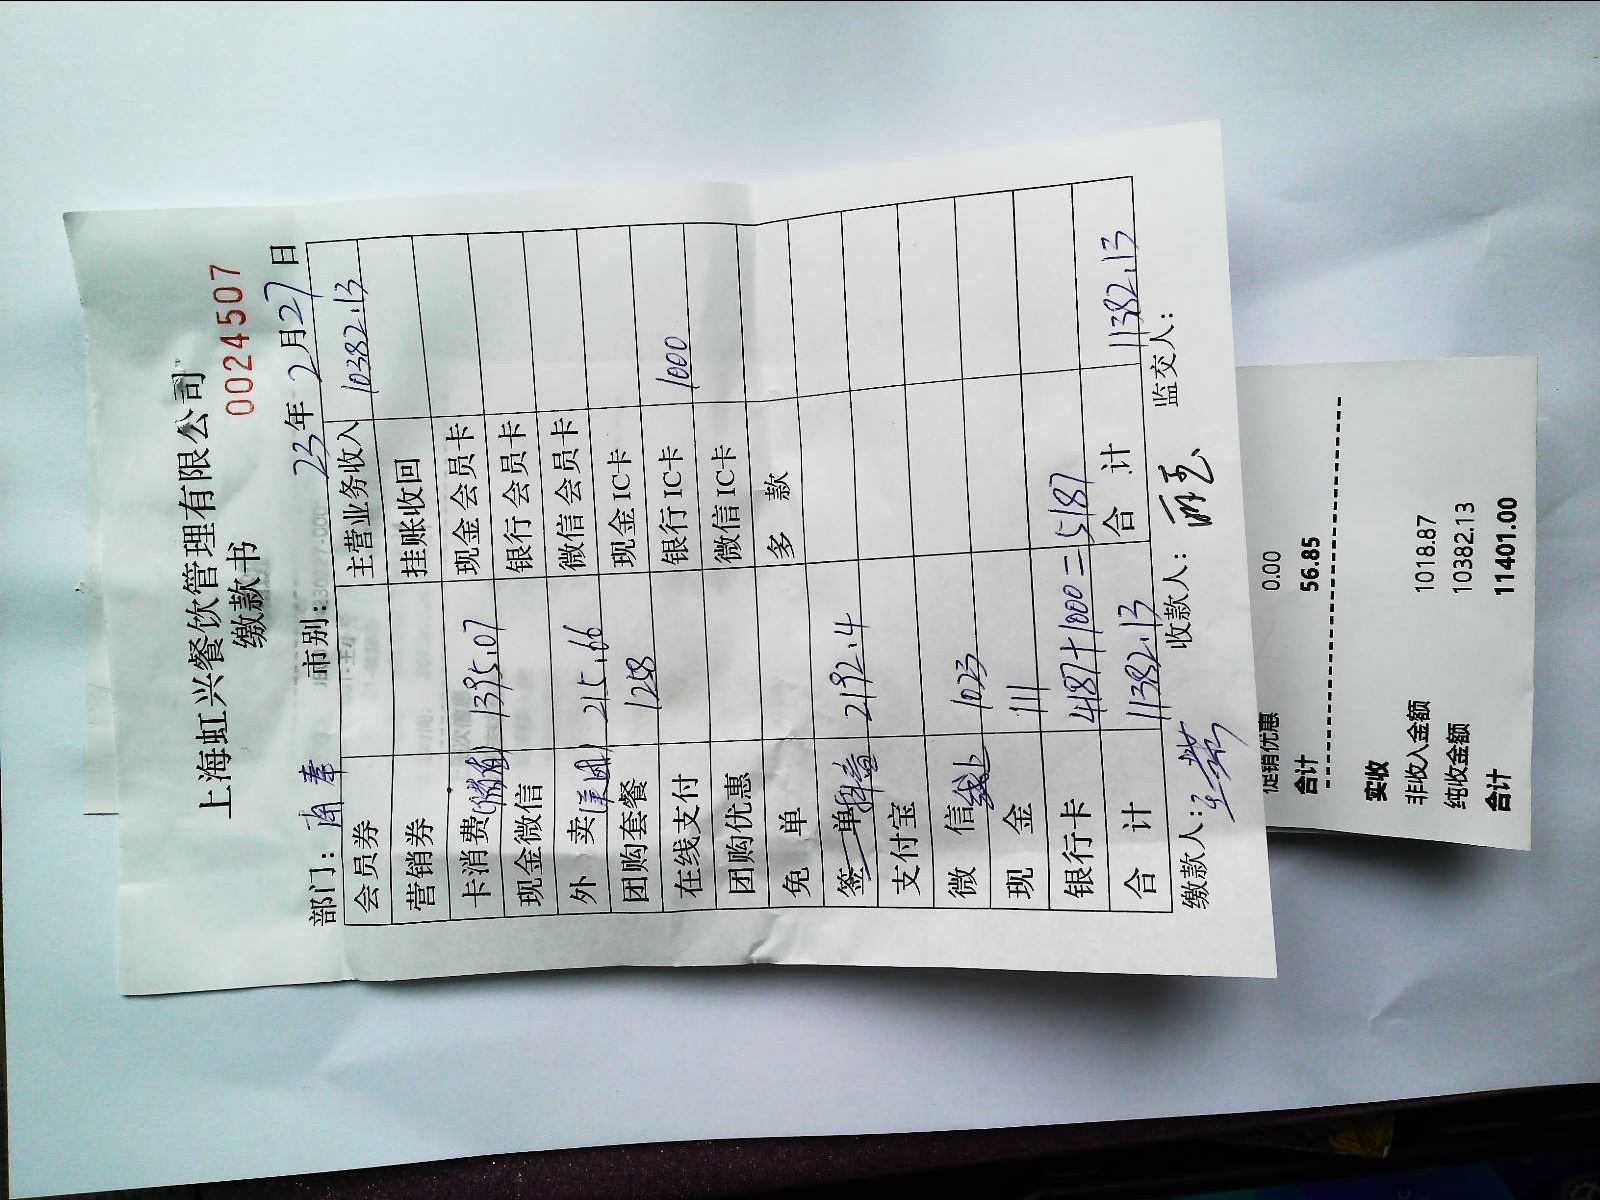 上海虹兴餐饮管理有限公司
缴款书
0024507
部门：南 市别： 23年2月27日
会员券 主营业务收入 10382.13
营销券 挂账收回
卡消费 1395.07 现金会员卡
现金微信 银行会员卡
外 卖(美团) 215.66 微信会员卡
团购套餐 1258 现金IC卡
在线支付 银行IC卡 1000
团购优惠 微信IC卡
免 单 多 款
签 单抖音 2192.4
支付宝
微 信线上 1023
现 金 111
银行卡 4187+1000=5187
合 计 11382.13 合 计 11382.13
缴款人： 收款人： 监交人：
促销优惠 0.00
合计 56.85
实收
非收入金额 1018.87
纯收金额 10382.13
合计 11401.00